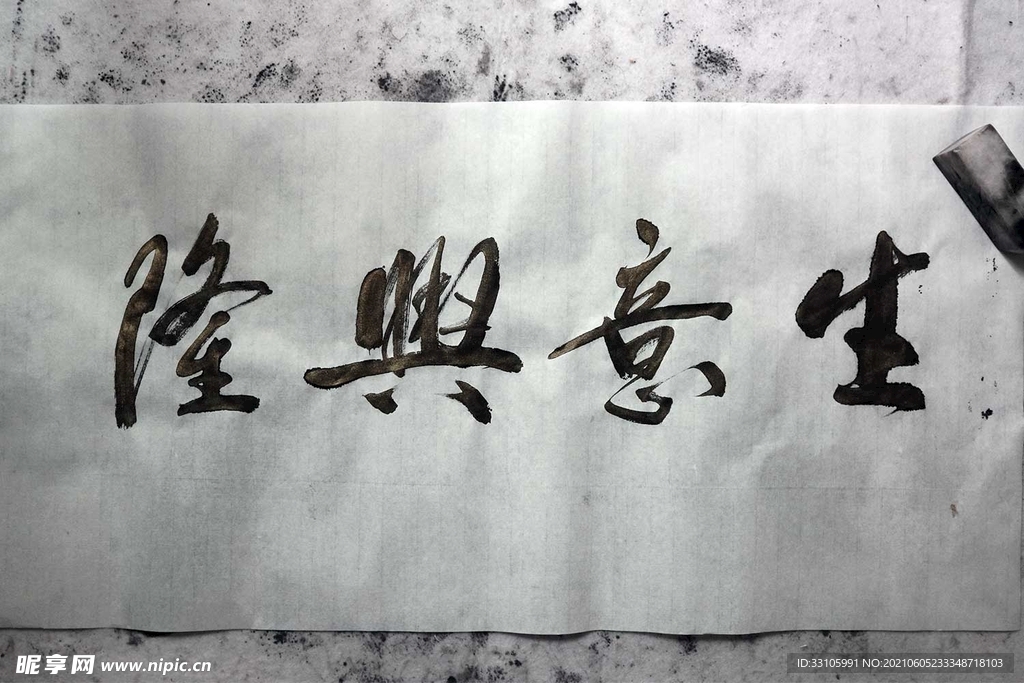 生意興隆
昵享网 www.nipic.cn
ID:33105991 NO:20210605233348718103